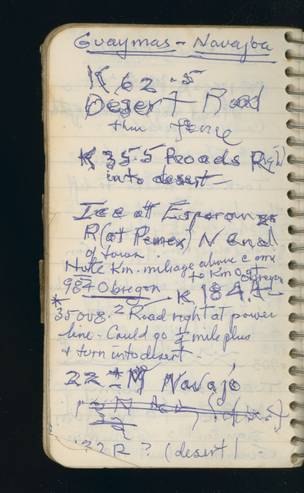 Guaymas - Navajoa
K 62.5
Desert Road
thru fence
K 35.5 Roads Right
into desert
Ice at Esperanza
R (at Pemex) N end
of town.
Note Km. mileage above
to Km Obregon
984 Obregon K 1849
* Road right at power
line - Could go ½ mile plus
+ turn into desert
22 M Navajó
22 R ? (desert)